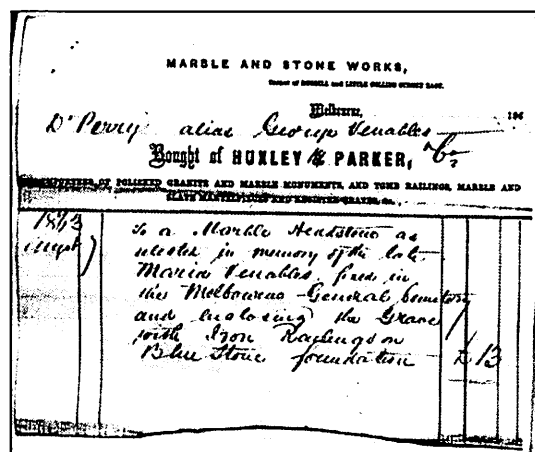 MARBLE AND STONE WORKS,
Corner of RUSSELL and LITTLE COLLINS STREET EAST.
Melbourne, 186
Dr Perry alias George Venables
Bought of HUXLEY & PARKER,
OF POLISHED GRANITE AND MARBLE MONUMENTS, AND TOMB RAILINGS, MARBLE AND
SLATE MANTELPIECES AND REGISTER GRATES, &c.,
1863
To a Marble Headstone as
selected in memory of the late
Maria Venables, fixed in
the Melbourne General Cemetery
and enclosing the Grave
with Iron Railings on
Blue Stone foundation £13